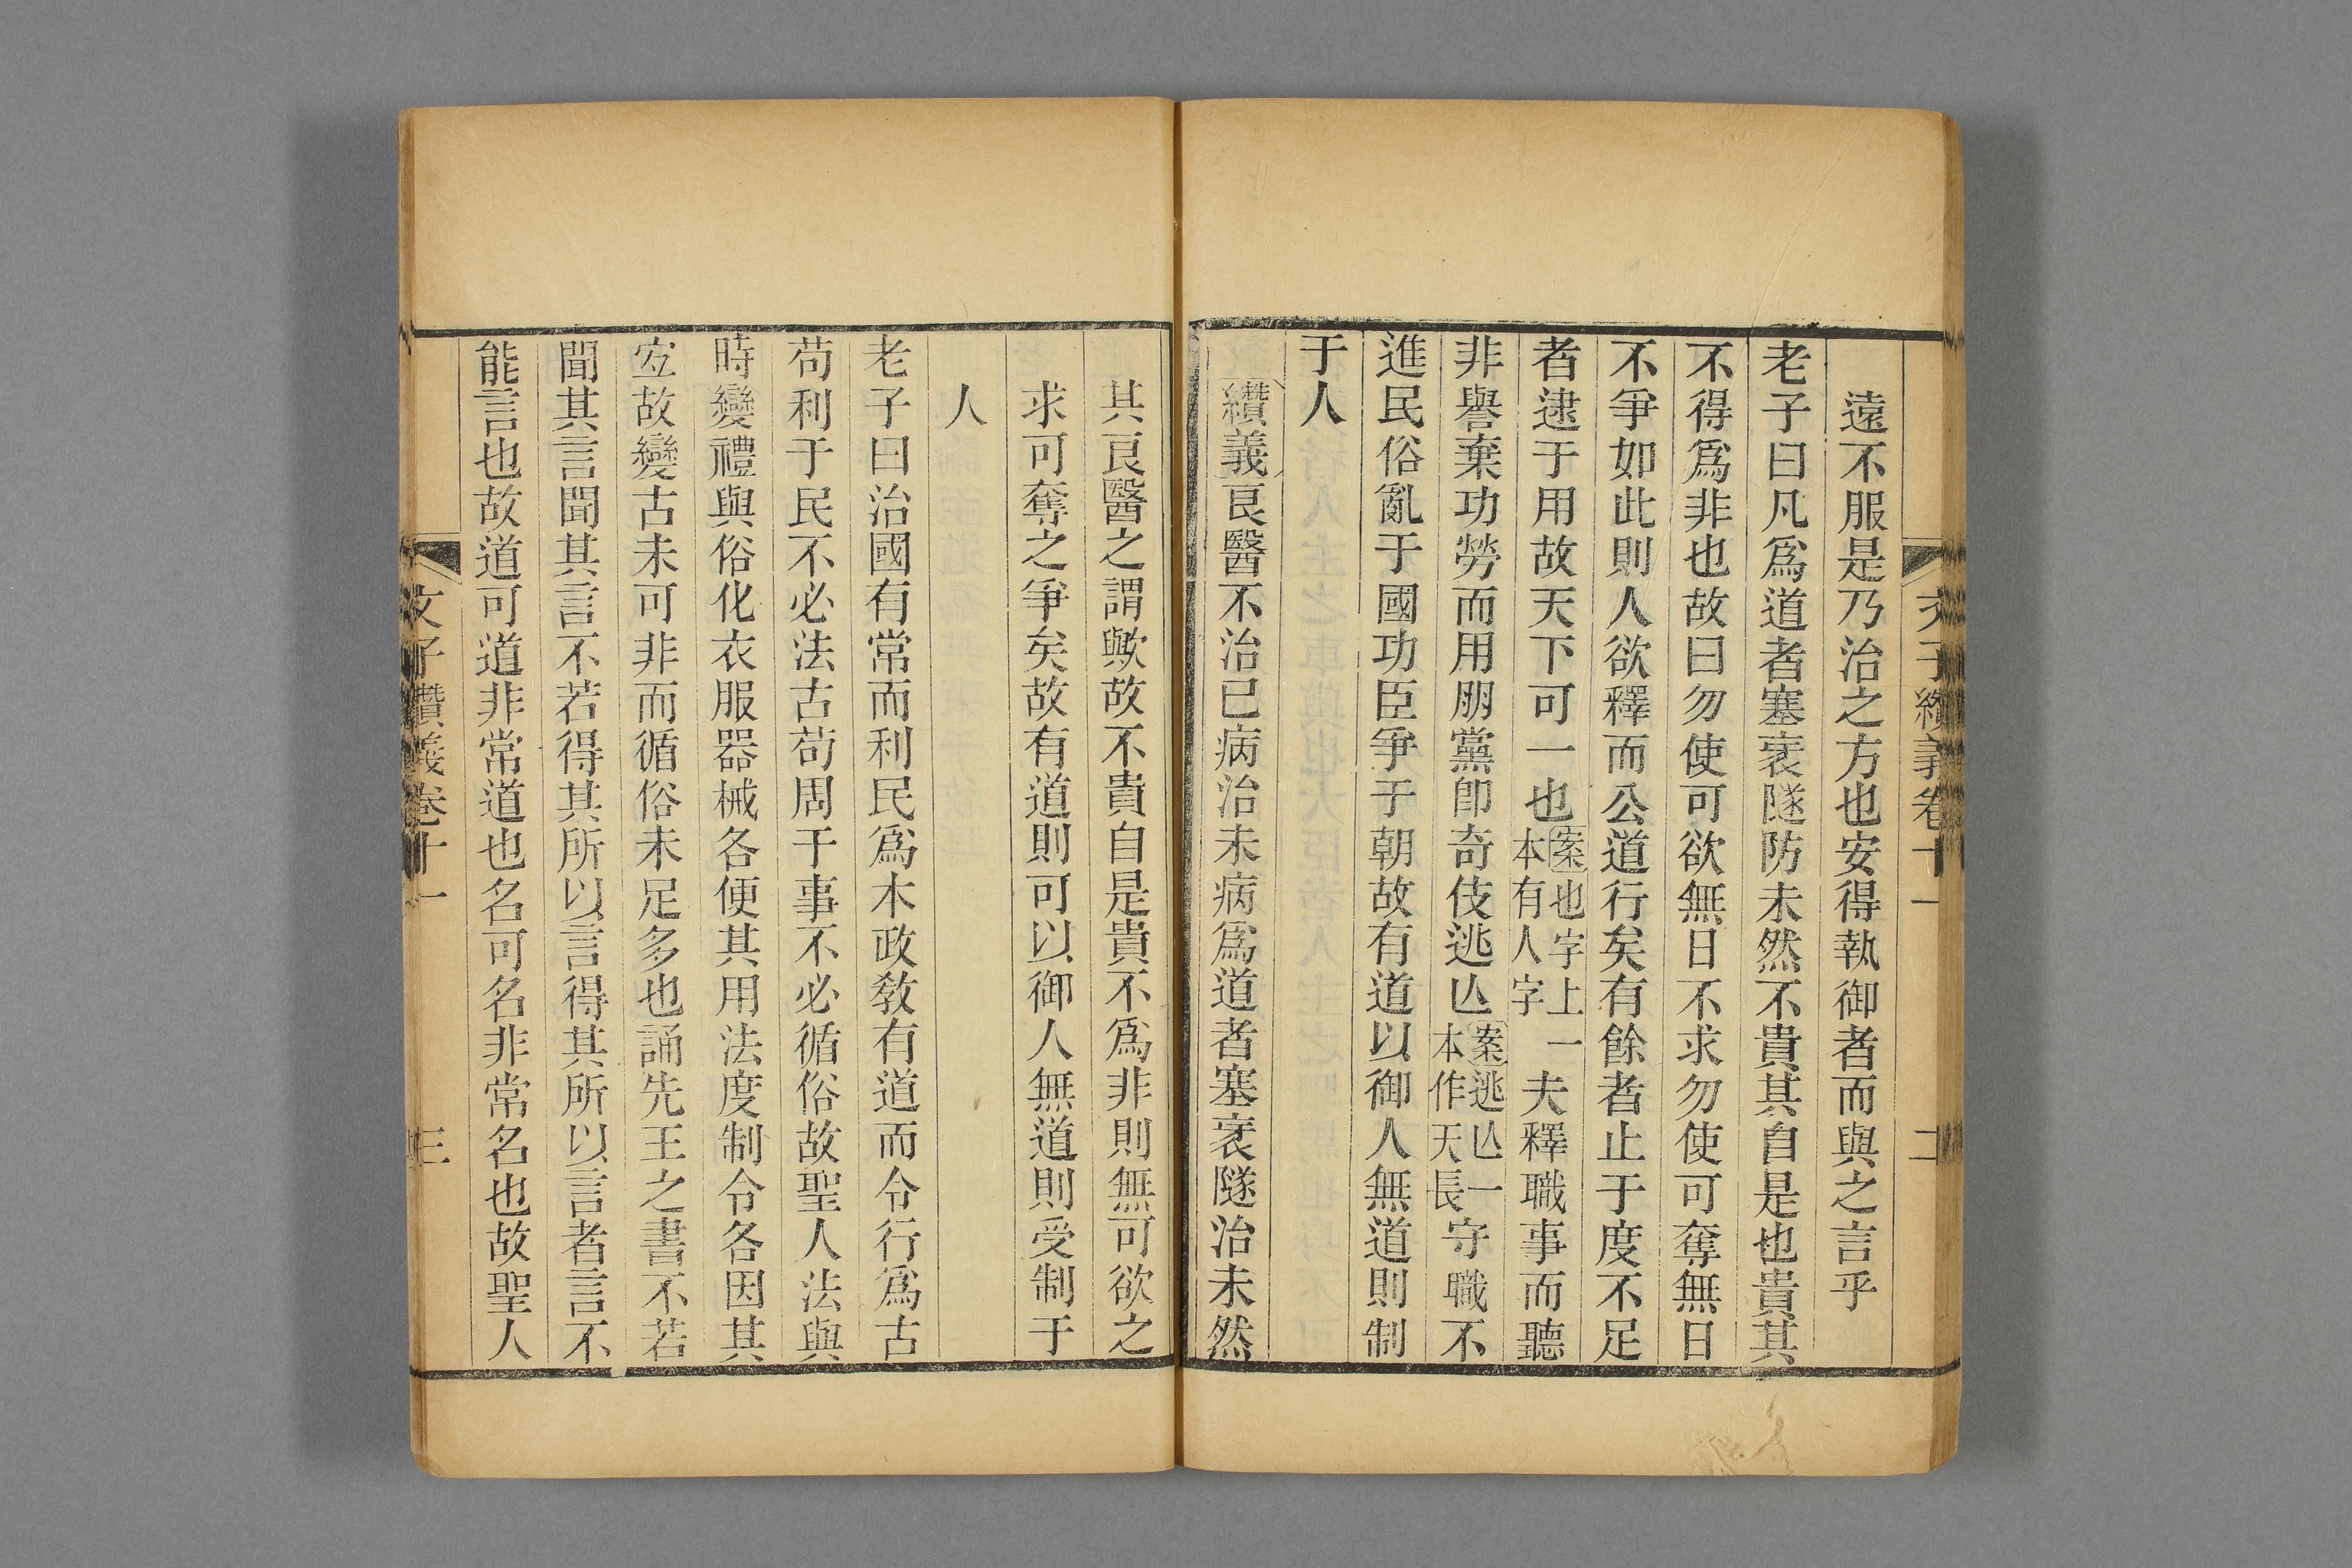 文子纘義卷十一
二
遠不服是乃治之方也安得執御者而與之言乎
老子曰凡爲道者塞衺隧防未然不貴其自是也貴其
不得爲非也故曰勿使可欲無日不求勿使可奪無日
不爭如此則人欲釋而公道行矣有餘者止于度不足
者逮于用故天下可一也案也字上一本有人字夫釋職事而聽
非譽棄功勞而用朋黨卽奇伎逃亾案逃亾一本作天長守職不
進民俗亂于國功臣爭于朝故有道以御人無道則制
于人
纘義良醫不治已病治未病爲道者塞衺隧治未然
其良醫之謂歟故不貴自是貴不爲非則無可欲之
求可奪之爭矣故有道則可以御人無道則受制于
人
老子曰治國有常而利民爲木政敎有道而令行爲古
苟利于民不必法古苟周于事不必循俗故聖人法與
時變禮與俗化衣服器械各便其用法度制令各因其
宐故變古未可非而循俗未足多也誦先王之書不若
聞其言聞其言不若得其所以言得其所以言者言不
能言也故道可道非常道也名可名非常名也故聖人
文子纘義卷十一
三